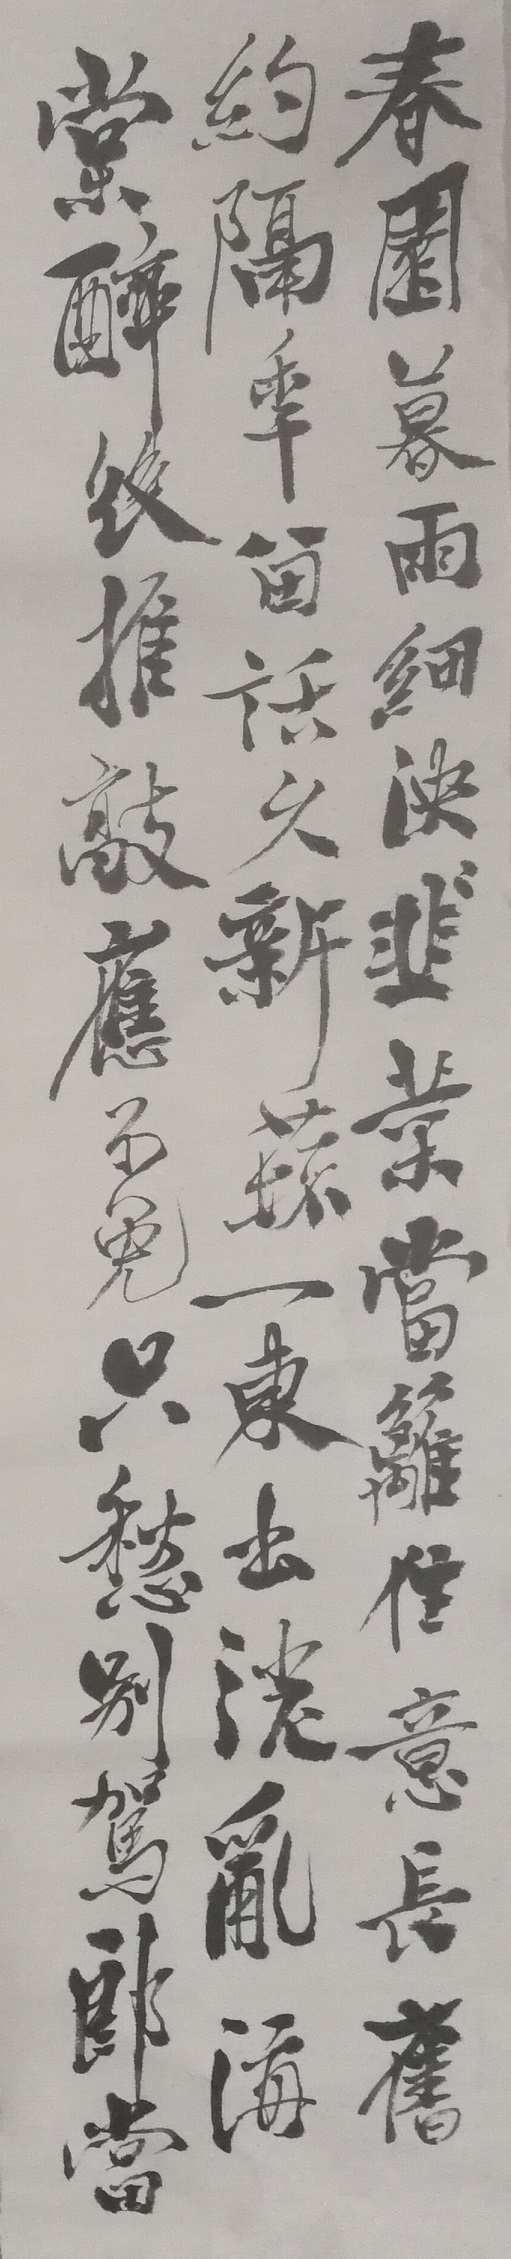 春園暮雨細泱韭葉當籬作意長舊
約隔年留話久新蔬一束出泥乱溝
棠醉後推敲應不免只愁別駕郎當